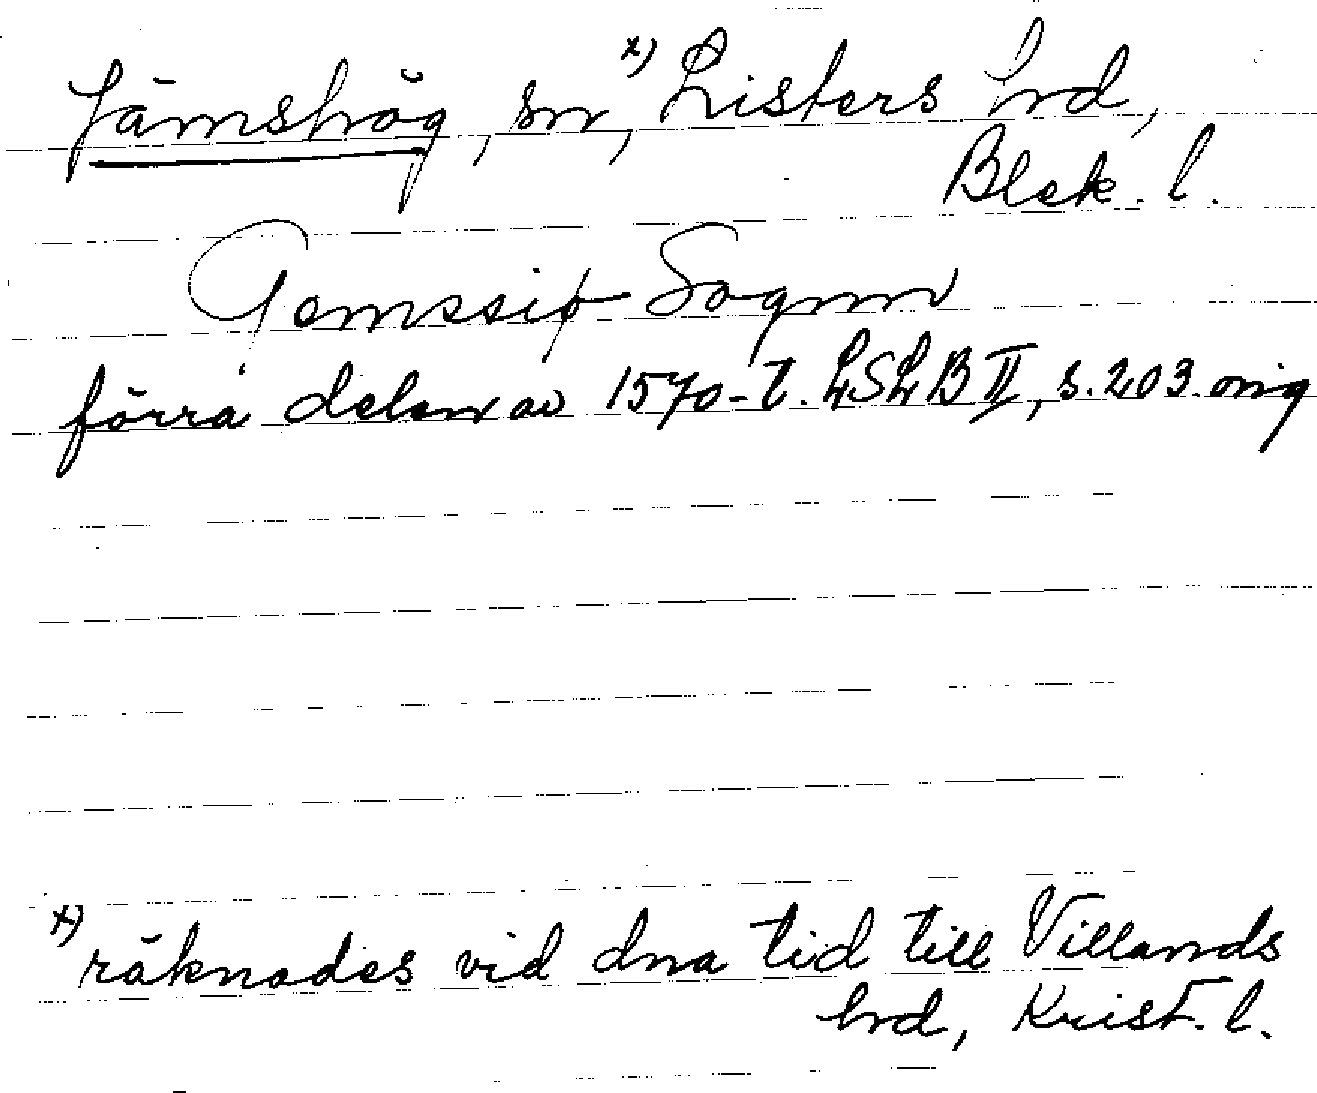 Jämshög, sn, x) Listers hrd,
Blek. l.
Gemssiø Sognn
förra delen av 1570-t. LSLB II, s. 203. orig
x) räknades vid dna tid till Villands
hrd, Krist. l.